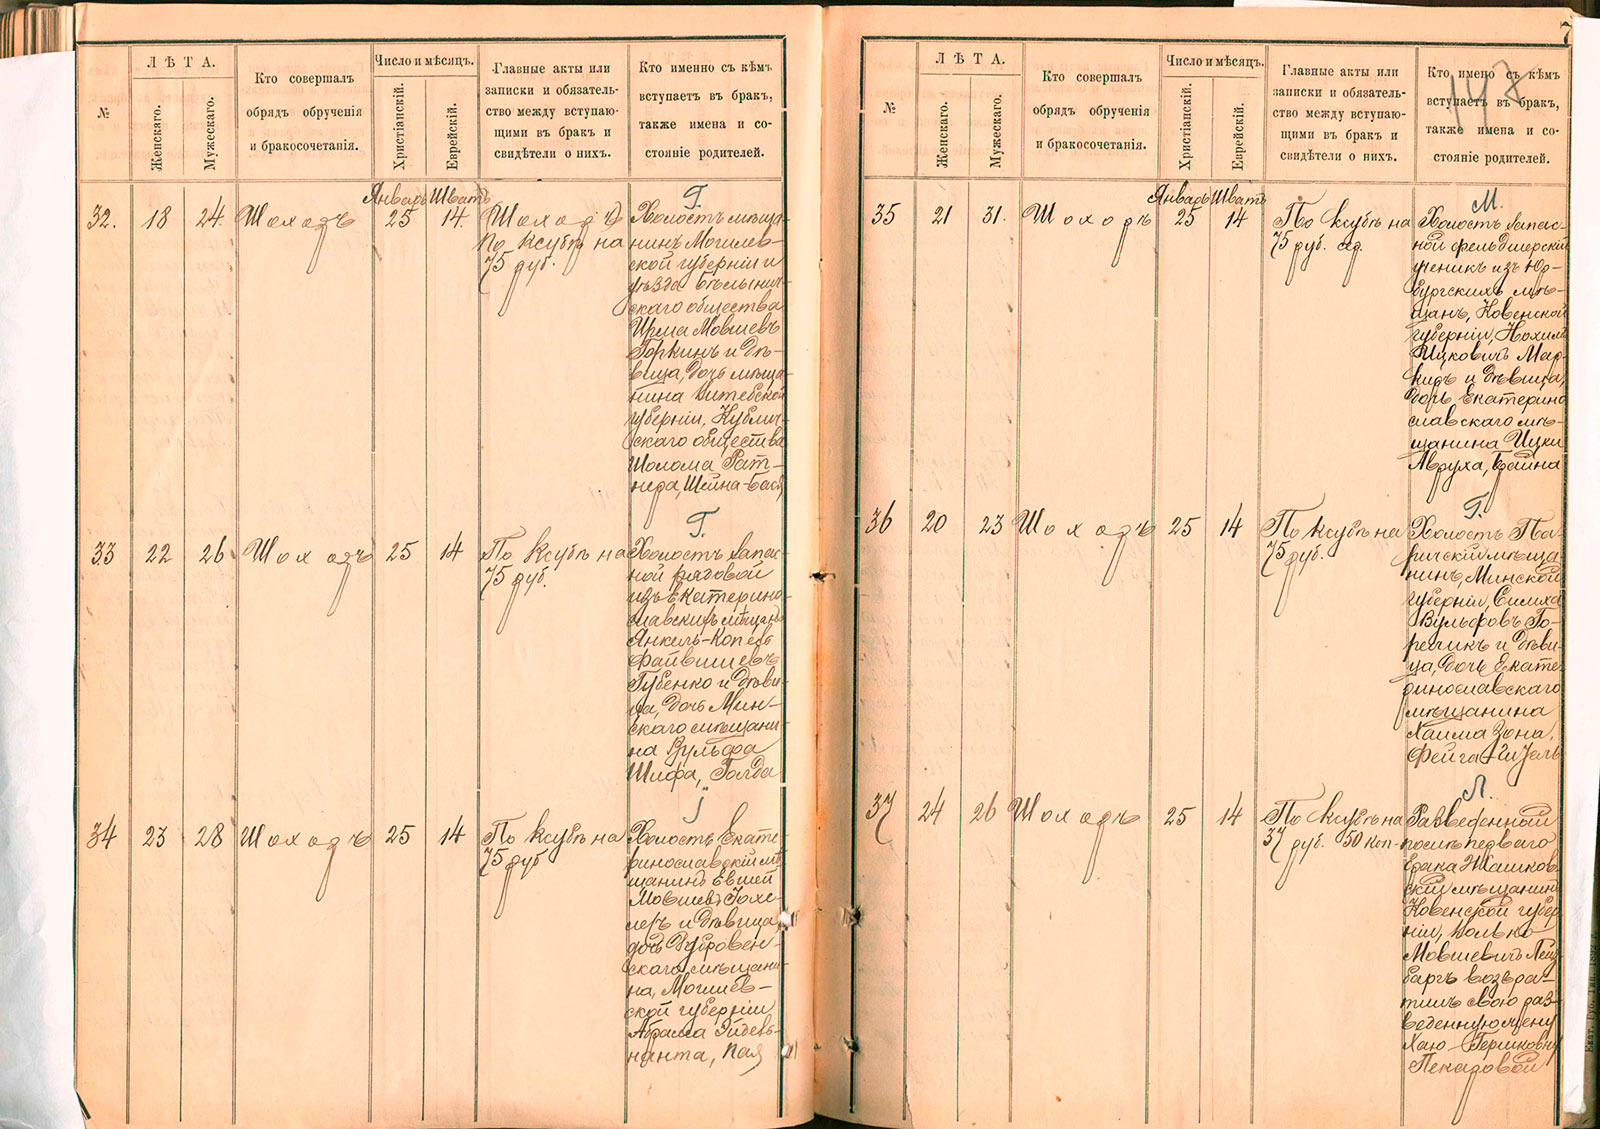 №
ЛѢТА.
Женскаго.
Мужескаго.
Кто совершалъ
обрядъ обрученія
и бракосочетанія.
Число и мѣсяцъ.
Христіанскій.
Еврейскій.
Главные акты или
записки и обязатель-
ство между вступаю-
щими въ бракъ и
свидѣтели о нихъ.
Кто именно съ кѣмъ
вступаетъ въ бракъ,
также имена и со-
стояніе родителей.
Январь Шватъ
32. 18 24. Шоходъ 25 14. Шоходъ
По ксубѣ на
75 руб.
Г.
Холостъ мѣща-
нинъ Могилев-
ской губерніи и
уѣзда Бѣлынич-
скаго общества
Ирма Мовшевъ
Горкинъ и дѣ-
вица, дочь мѣща-
нина Витебской
губерніи, Кублич-
скаго общества
Шолома Рат-
нера, Шейна-Бася
33 22 26 Шоходъ 25 14 По ксубѣ на
75 руб.
Г.
Холостъ запас-
ной рядовой
изъ Екатерино-
славскихъ мѣщанъ
Янкель-Копель
Файвишевъ
Губенко и дѣви-
ца, дочь Мин-
скаго мѣщани-
на Вульфа
Шифа, Голда
34 23 28 Шоходъ 25 14 По ксубѣ на
75 руб
Холостъ Екате-
ринославскій мѣ-
щанинъ Евшей
Мовшевъ Гохе-
леръ и дѣвица
дочь Дубровен-
скаго мѣщани-
на, Могилев-
ской губерніи
Абрама Эйдель-
нанта, Пая
7
147
№
ЛѢТА.
Женскаго.
Мужескаго.
Кто совершалъ
обрядъ обрученія
и бракосочетанія.
Число и мѣсяцъ.
Христіанскій.
Еврейскій.
Главные акты или
записки и обязатель-
ство между вступаю-
щими въ бракъ и
свидѣтели о нихъ.
Кто имено съ кѣмъ
вступаетъ въ бракъ,
также имена и со-
стояніе родителей.
Январь Шватъ
35 21 31. Шоходъ 25 14 По ксубѣ на
75 руб. сер.
М.
Холостъ запас-
ной фельдшерскій
ученикъ изъ Юр-
бургскихъ мѣ-
щанъ, Ковенской
губерніи, Нохимъ
Ицковичъ Мар-
кидъ и дѣвица,
дочь Екатерино
славскаго мѣ-
щанина Ицки
Авруха, Брайна
36 20 23 Шоходъ 25 14 По ксубѣ на
75 руб.
Г.
Холостъ Па-
ричскій мѣща-
нинъ, Минской
губерніи, Симха
Вульфовъ Го-
реликъ и дѣви-
ца, дочь Екате-
ринославскаго
мѣщанина
Хаима Зона,
Фейга-Гитель
37 24 26 Шоходъ 25 14 По ксубѣ на
37 руб. 50 коп-
Л.
Разведенный
послѣ перваго
брака Жашков-
скій мѣщанинъ
Ковенской губер-
ніи, Волько
Мовшевичъ Лей-
баръ возвра-
тилъ свою раз-
веденную жену
Хаю Гершковну
Пекаровой